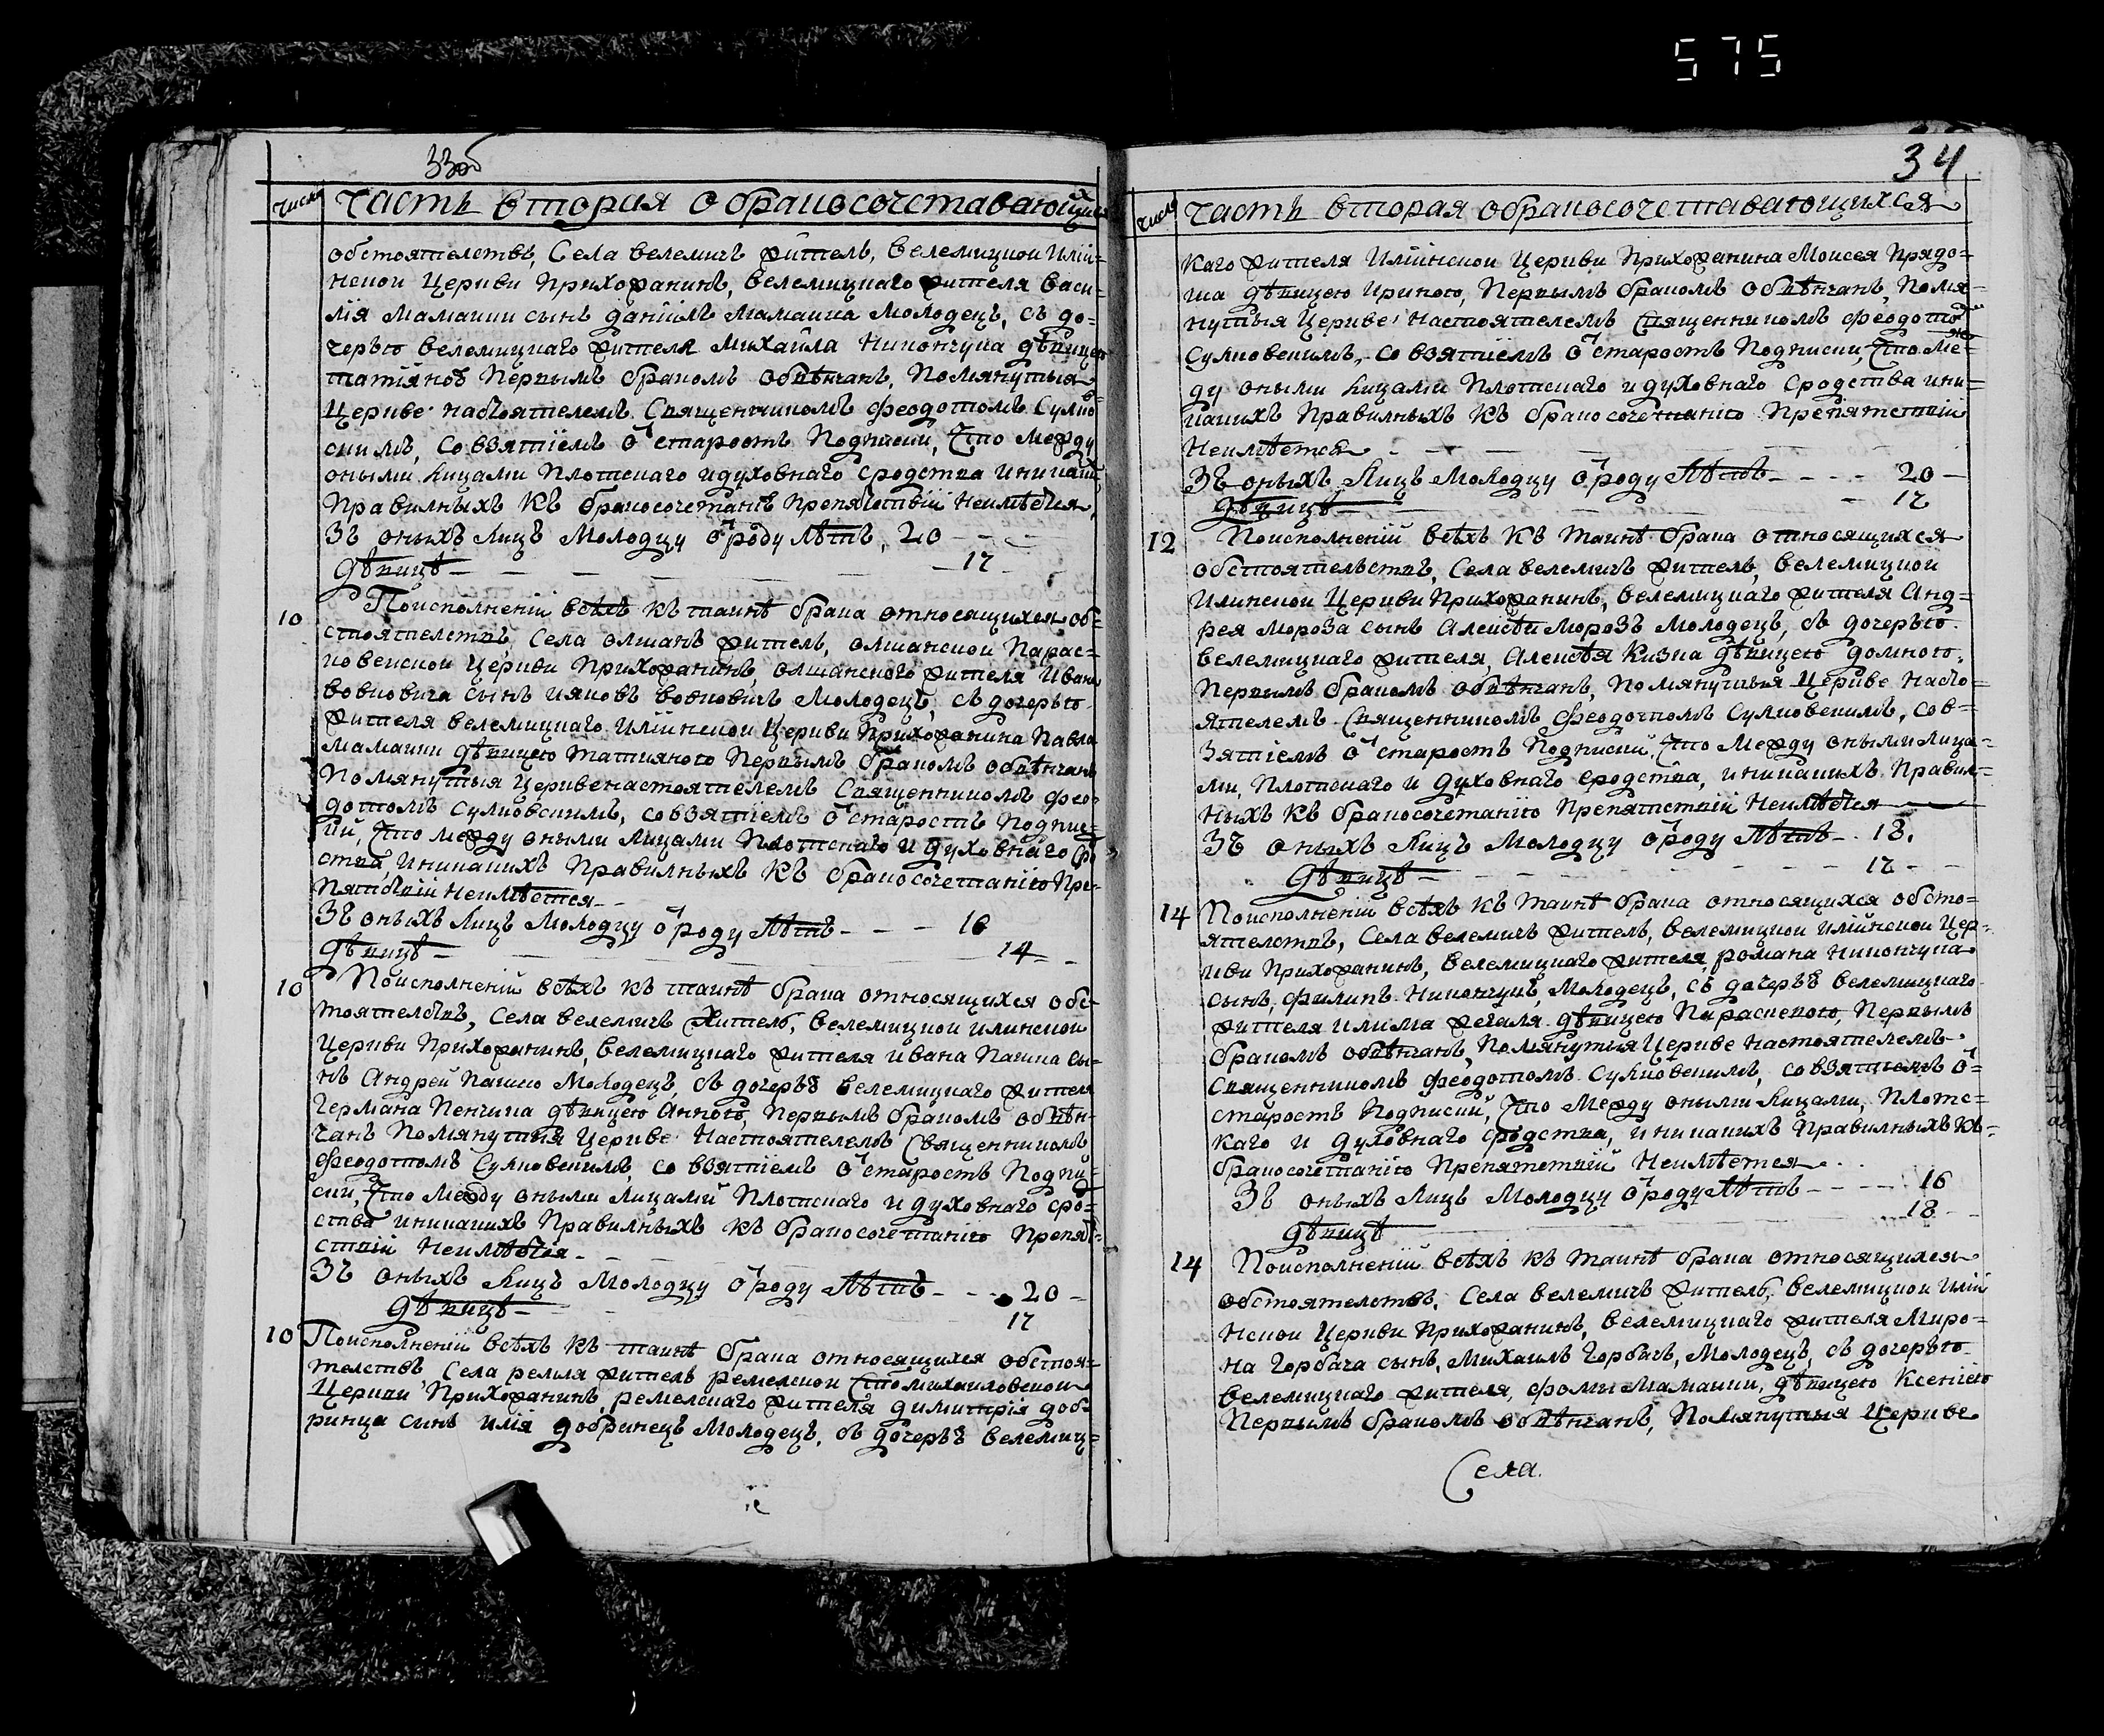 575
33об
числа
часть вторая о бракосочетавающихся
обстоятелствъ, Села велемичъ житель, велемицкои Илїи=
нской Церкви Прихожанинъ, велемицкаго жителя Васи=
лїя Мамаики сынъ Данїилъ Мамайка Молодецъ, съ до=
черъю велемицкаго жителя Михаила Никончука дѣвицею
татїяною Первымъ бракомъ обвѣнчанъ, Помянутыя
Церкве настоятелемъ Священникомъ Феодотомъ Сулко=
скимъ, со взятїемъ ѿ старостъ Подписки, Что Между
оными Лицами Плотскаго и духовнаго сродства и никаких
Правилныхъ къ бракосочетанїю Препятствїй Неимѣется,
Зъ оныхъ Лицъ Молодцу ѿ роду лѣтъ, 20
дѣвицѣ 17
10 Поисполненїи всѣхъ къ таинѣ брака относящихся об=
стоятелствъ, Села олшанъ житель, олшанской Парас=
ковенской Церкви Прихожанинъ, олшанского жителя Ивана
вовковича сынъ Ияковъ вовковичъ Молодецъ, съ дочерью
жителя велемицкаго Илїинской Церкви Прихожанина Павла
мамаики дѣвицею татияною Первымъ бракомъ обвѣнчанъ
Помянутыя Церкве настоятелемъ Священникомъ Фео=
дотомъ Сулковскимъ, со взятїемъ ѿ старостъ Подпис=
ки, Что между оными Лицами Плотскаго и духовнаго срод
ства, и никакихъ Правилныхъ къ бракосочетанїю Пре=
пятствїй неимѣется
Зъ оныхъ Лицъ Молодцу ѿ роду лѣтъ 16
дѣвицѣ 14
10 Поисполненїи всѣхъ къ таинѣ брака относящихся обс=
тоятелствъ, Села велемичъ Житель, велемицкои илинской
Церкви Прихожанинъ, велемицкаго жителя Ивана Пашка сы=
нъ Андрей Пашко Молодецъ, съ дочеръю велемицкаго жителя
Германа Пенчика дѣвицею Анною, Первымъ бракомъ обвѣн=
чанъ Помянутыя Церкве Настоятелемъ Священникомъ
Феодотомъ Сулковскимъ, со взятїемъ ѿ старостъ Подпи=
ски, Что Между оными Лицами Плотскаго и духовнаго сро=
ства и никакихъ Правилныхъ къ бракосочетанїю Препят=
ствїи Неимѣется
Зъ оныхъ Лицъ Молодцу ѿ роду лѣтъ 20
дѣвицѣ 17
10 Поисполненїи всѣхъ къ таинѣ брака относящихся обстоя=
телствъ Села ремля житель ремелской Стомихаиловской
Церкви Прихожанинъ, ремелскаго жителя димитрїя доб=
ринца сынъ добринецъ Молодецъ, съ дочеръю велемиц=
34
числа
часть вторая о бракосочетавающихся
каго жителя Илїинской Церкви Прихожанина Моисея Прядо=
ша дѣвицею Ириною, Первымъ бракомъ обвѣнчанъ, Помя=
нутыя Церкве настоятелемъ Священникомъ Феодотом
Сулковскимъ, со взятїемъ ѿ старостъ Подписки, Что Меж=
ду оными Лицами Плотскаго и духовнаго сродства и ни=
какихъ Правилныхъ къ бракосочетанїю Препятствїй
Неимѣется
Зъ оныхъ Лицъ Молодцу ѿ роду лѣтъ 20
дѣвицѣ 17
12 Поисполненїй всѣхъ къ таинѣ брака относящихся
обстоятельствъ, Села велемичъ житель, велемицкой
Илинской Церкви Прихожанинъ, велемицкаго жителя Анд=
рея Мороза сынъ Алексѣй Морозъ Молодецъ, съ дочеръю
велемицкаго жителя, Алексѣя Кизка дѣвицею домною,
Первымъ бракомъ обвѣнчанъ, Помянутыя Церкве насто=
ятелемъ Священникомъ Феодотомъ Сулковскимъ, со в=
зятїемъ ѿ старостъ Подписки, Что Между оными лица=
ми, Плотскаго и духовнаго сродства, и никакихъ Правил=
ныхъ къ бракосочетанїю Препятствїй Неимѣется
Зъ оныхъ Лицъ Молодцу ѿ роду лѣтъ 18.
дѣвицѣ 17
14 Поисполненїи всѣхъ къ таинѣ брака относящихся обсто=
ятелствъ, Села велемичъ житель, велемицкой илїинской Цер=
кви Прихожанинъ, велемицкаго жителя романа Никончука
сынъ, Филипъ Никончукъ, Молодецъ, съ дочеръю велемицкаго
жителя дѣвицею Параскевою, Первымъ
бракомъ обвѣнчанъ, Помянутыя Церкве настоятелемъ
Священникомъ Феодотомъ Сулковскимъ, со взятїемъ ѿ=
старостъ Подписки, Что Между оными Лицами, Плотс=
каго и духовнаго сродства, и никакихъ Правилныхъ къ=
бракосочетанїю Препятствїй Неимѣется
Зъ оныхъ Лицъ Молодцу ѿ роду лѣтъ 16
дѣвицѣ 18
14 Поисполненїй всѣхъ къ таинѣ брака относящихся
обстоятелствъ, Села велемичъ житель, велемицкой Илїи
нской Церкви Прихожанинъ, велемицкаго жителя Миро=
на Горбача сынъ, Михаилъ Горбачъ, Молодецъ, съ дочеръю
велемицкаго жителя, фомы Мамаики, дѣвицею Ксенїею
Первымъ бракомъ обвѣнчанъ, Помянутыя Церкве
Села.